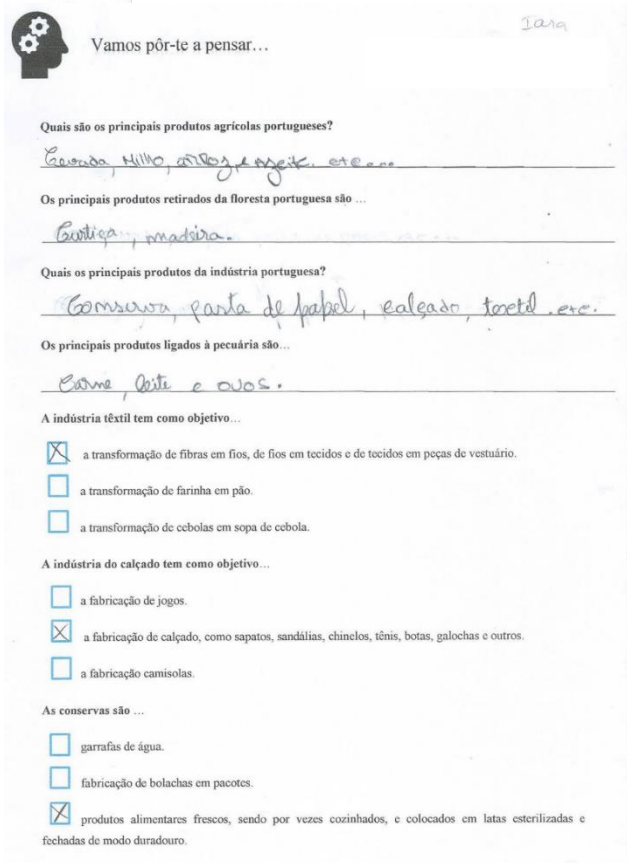 Iara
Vamos pôr-te a pensar…
Quais são os principais produtos agrícolas portugueses?
Cevada, Milho, arroz, e azeite. etc...
Os principais produtos retirados da floresta portuguesa são …
Curtiça, madeira.
Quais os principais produtos da indústria portuguesa?
Comserva, pasta de papel, calçado, toxetil. etc.
Os principais produtos ligados à pecuária são…
Carne, leite e ovos.
A indústria têxtil tem como objetivo…
a transformação de fibras em fios, de fios em tecidos e de tecidos em peças de vestuário.
a transformação de farinha em pão.
a transformação de cebolas em sopa de cebola.
A indústria do calçado tem como objetivo…
a fabricação de jogos.
a fabricação de calçado, como sapatos, sandálias, chinelos, tênis, botas, galochas e outros.
a fabricação camisolas.
As conservas são …
garrafas de água.
fabricação de bolachas em pacotes.
produtos alimentares frescos, sendo por vezes cozinhados, e colocados em latas esterilizadas e
fechadas de modo duradouro.